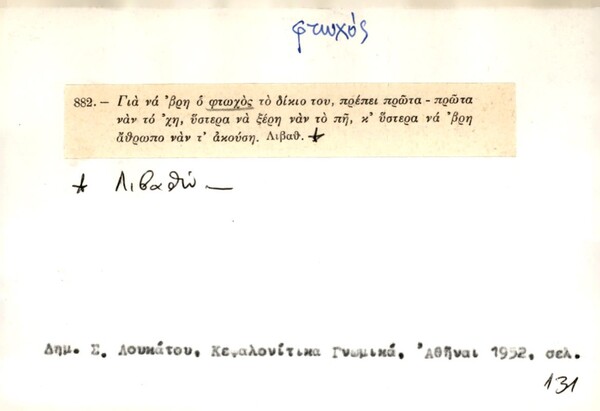 φτωχός
882.— Γιὰ νά ᾿βρη ὁ φτωχὸς τὸ δίκιο του, πρέπει πρῶτα - πρῶτα
νὰν τό ᾿χη, ὕστερα νὰ ξέρη νὰν τὸ πῆ, κ᾿ ὕστερα νά ᾿βρη
ἄθρωπο νὰν τ᾿ ἀκούση. Λιβαθ. *
* Λιβαθώ —
Δημ. Σ. Λουκάτου, Κεφαλονίτικα Γνωμικά, Ἀθῆναι 1952, σελ.
131